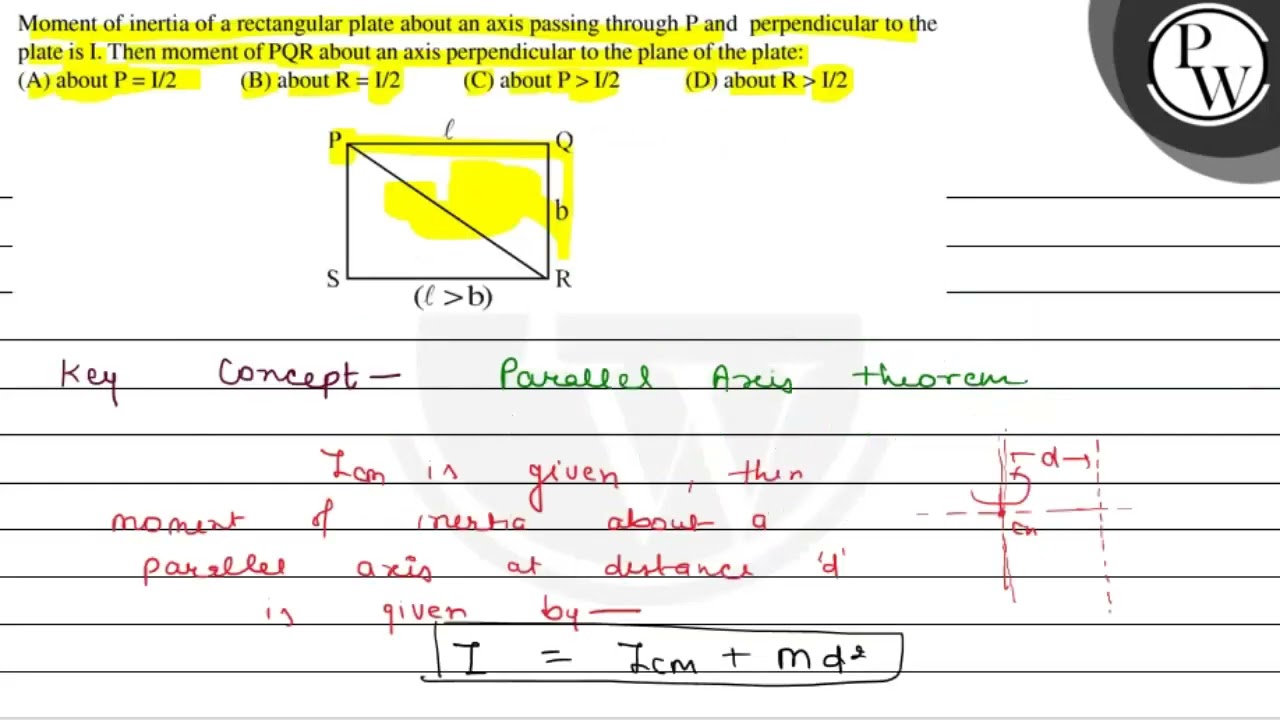 Moment of inertia of a rectangular plate about an axis passing through P and perpendicular to the
plate is I. Then moment of PQR about an axis perpendicular to the plane of the plate:
(A) about P = I/2 (B) about R = I/2 (C) about P > I/2 (D) about R > I/2
P W
P ℓ Q
b
S R
(ℓ >b)
Key Concept – Parallel Axis theorem
Icm is given, then
moment of inertia about a
parallel axis at distance 'd'
is given by —
I = Icm + md²
d
cm